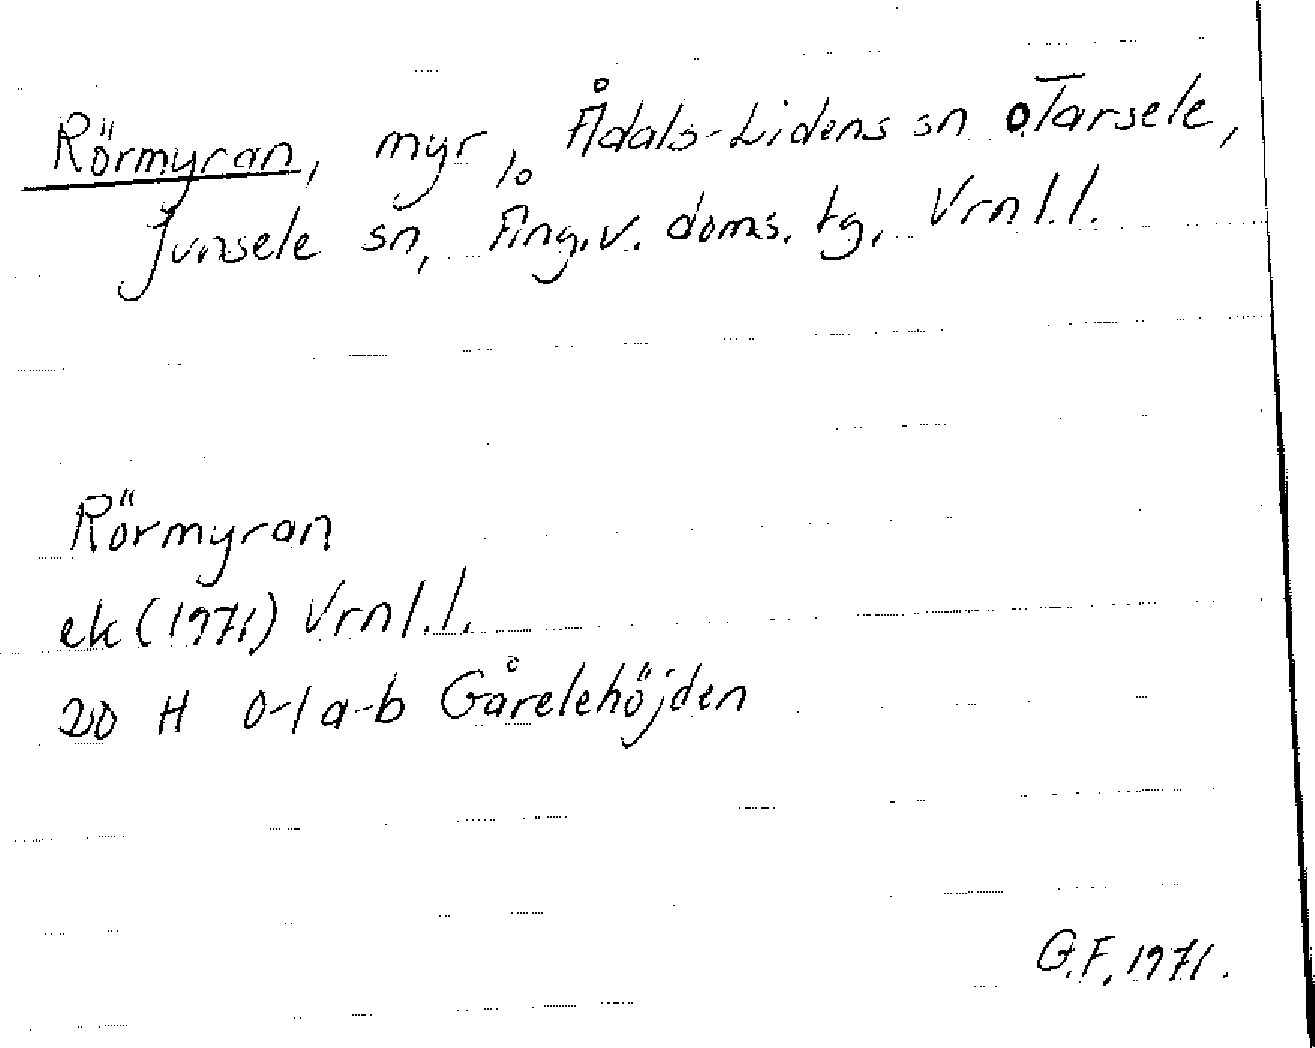 Rörmyran, myr, Ådals-Lidens sn o Tarsele,
Junsele sn, Ång. v. doms. tg, Vrnl.l.
Rörmyran
ek (1971) Vrnl.l.
20 H 0-1 a-b Gårelehöjden
G.F. 1971.